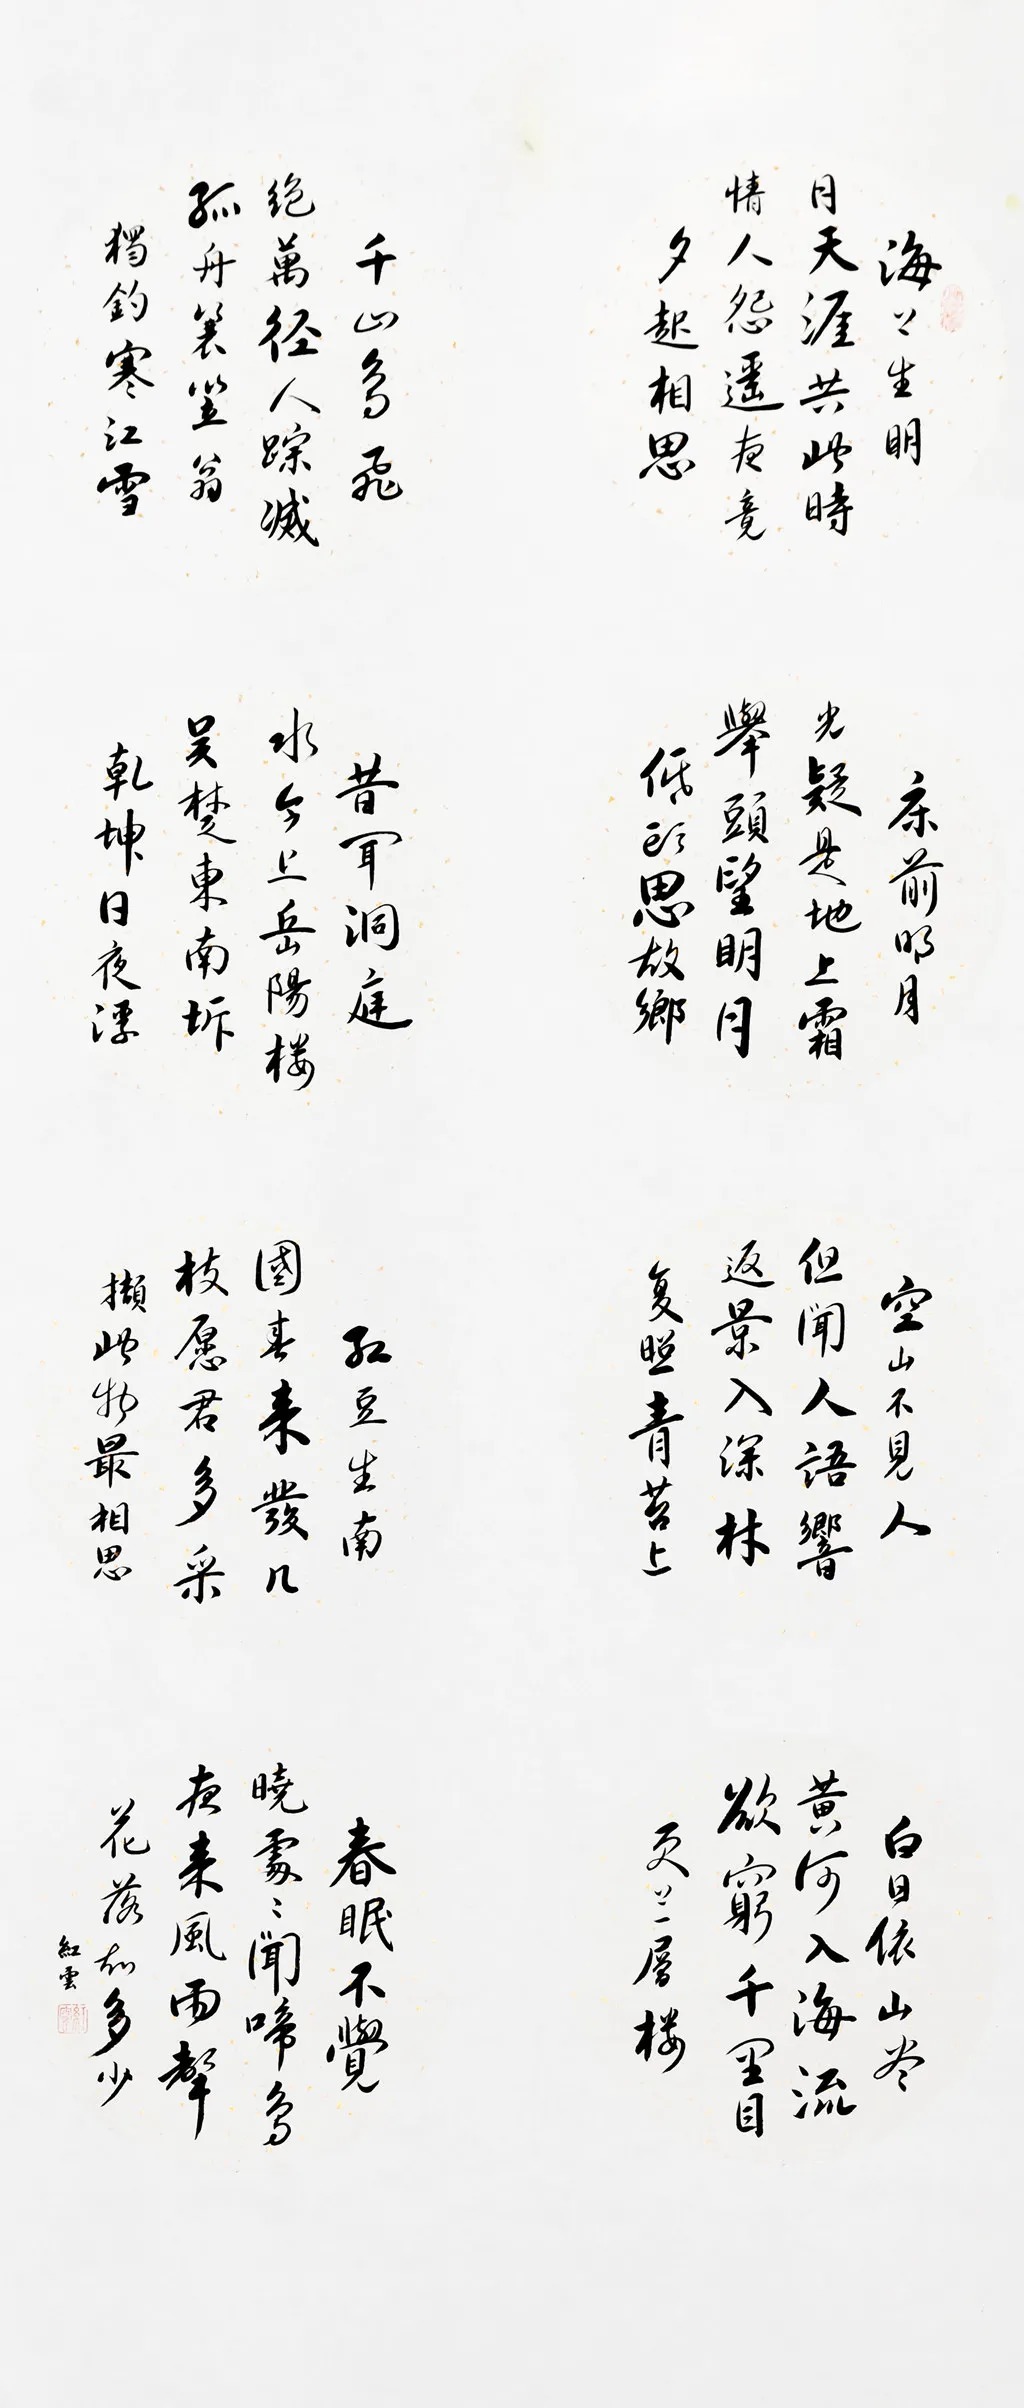 海上生明
月天涯共此時
情人怨遥夜竟
夕起相思
床前明月
光疑是地上霜
舉頭望明月
低頭思故鄉
空山不見人
但聞人語響
返景入深林
复照青苔上
白日依山尽
黄河入海流
欲窮千里目
更上一層楼
千山鸟飛
绝萬径人踪滅
孤舟蓑笠翁
獨釣寒江雪
昔闻洞庭
水今上岳陽楼
吴楚東南坼
乾坤日夜浮
红豆生南
國春来發几
枝愿君多采
擷此物最相思
春眠不覺
曉處〻聞啼鸟
夜来風雨聲
花落知多少
紅雲